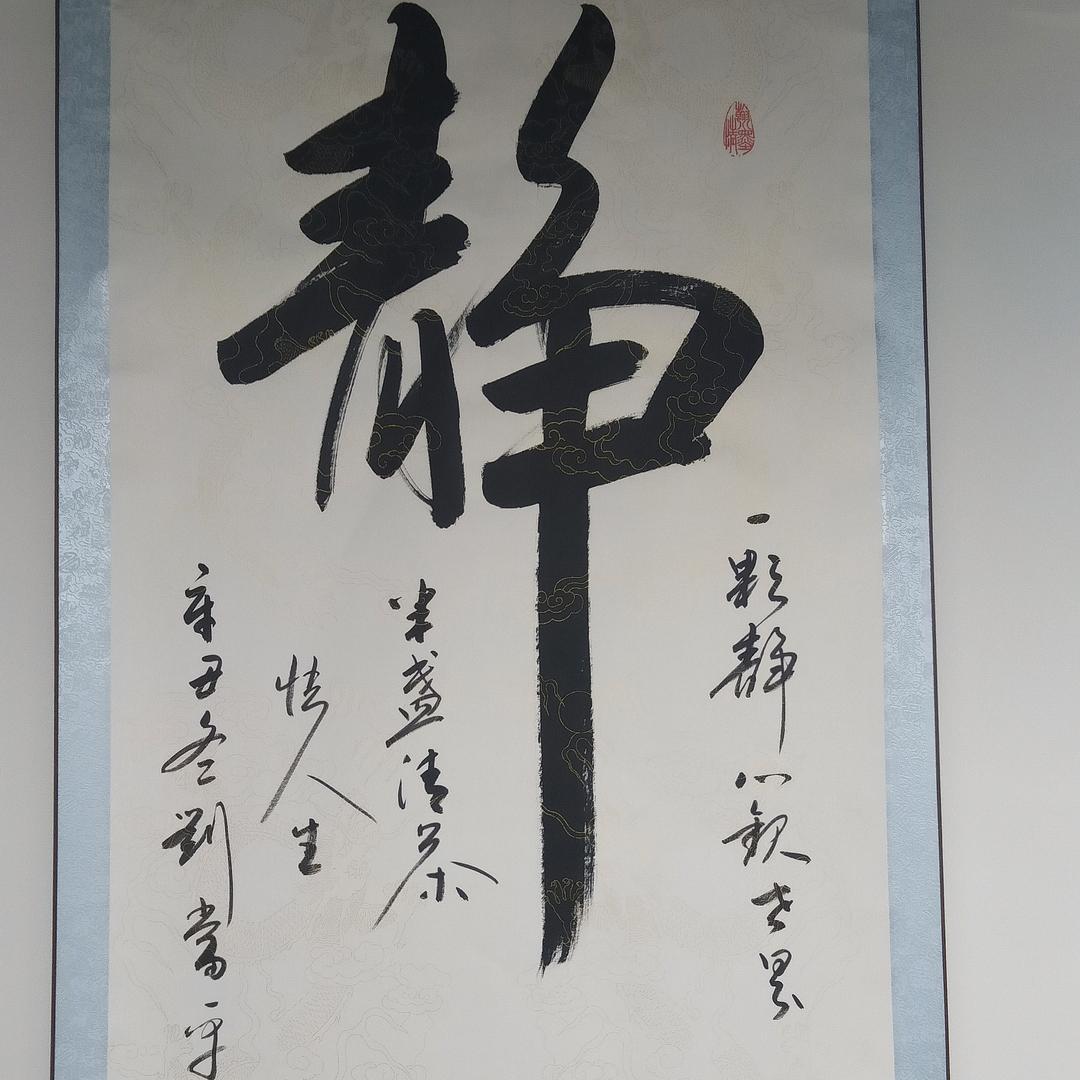 静
一颗静心观世界
半盏清茶
悟人生
辛丑冬劉常平